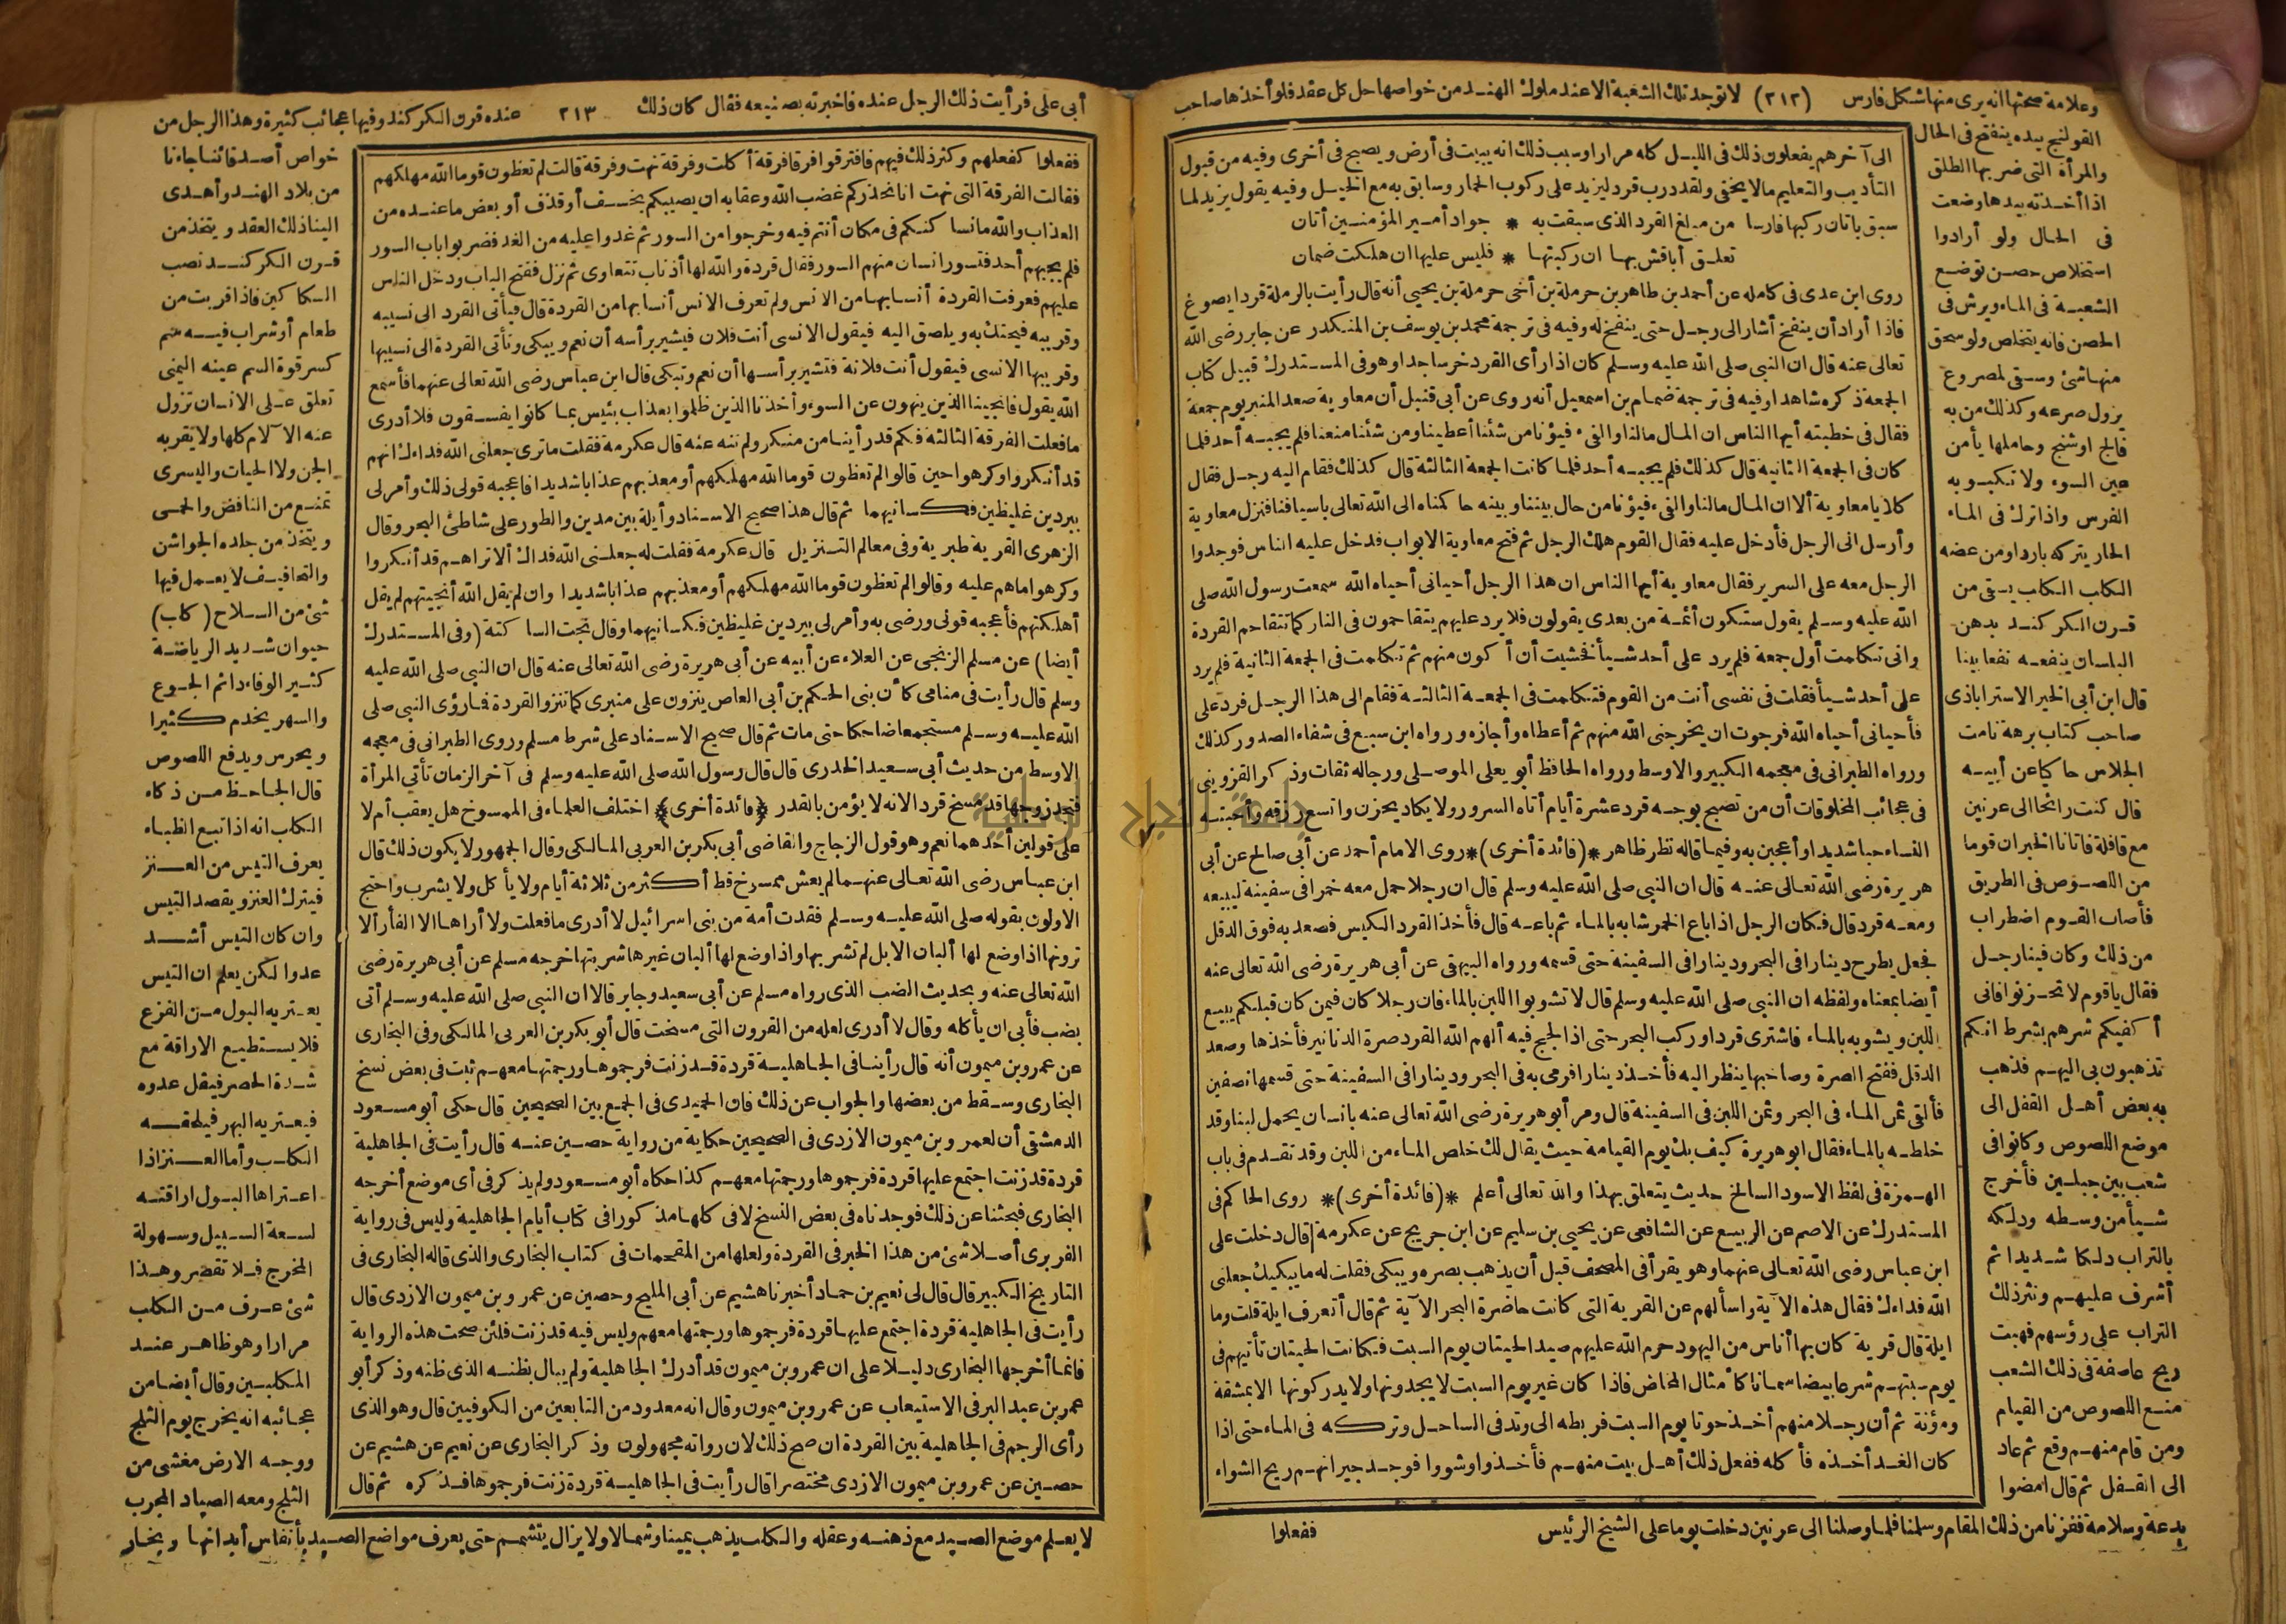 وعلامة صحتها انه يرى منها شكل فارس (٢١٢) لا توجد تلك الشعبة الا عند ملوك الهند من خواصها حل كل عقد فلو أخذها صاحب
القولنج بيده ينفتح فى الحال
والمرأة التى ضربها الطلق
اذا أخذته بيدها وضعت
فى الحال ولو أرادوا
استخلاص حصن توضع
الشعبة فى الماء ويرش فى
الحصن فانه يتخلص ولو سحق
منها شئ وسقى لمصروع
يزول صرعه وكذلك من به
فالج اوشنج وحاملها يأمن
عين السوء ولا تكبو به
الفرس واذا ترك فى الماء
الحار يتركه باردا ومن عضه
الكلب الكلب يسقى من
قرن الكركند بدهن
البلسان ينفعه نفعا بينا
قال ابن أبى الخير الاستراباذى
صاحب كتاب برهة نامت
الجلاس حاكيا عن أبيه
قال كنت رائحا الى عزنين
مع قافلة فاتانا الخبر ان قوما
من اللصوص فى الطريق
فأصاب القوم اضطراب
من ذلك وكان فينا رجل
فقال ياقوم لا تحزنوا فانى
أكفيكم شرهم بشرط انكم
تذهبون بى اليهم فذهب
به بعض أهل القفل الى
موضع اللصوص وكانوا فى
شعب بين جبلين فأخرج
شيأ من وسطه ودلكه
بالتراب دلكا شديدا ثم
أشرف عليهم ونثر ذلك
التراب على رؤسهم فهبت
ريح عاصفة فى ذلك الشعب
منع اللصوص من القيام
ومن قام منهم وقع ثم عاد
الى القفل ثم قال امضوا
بدعة وسلامة ففزنا من ذلك المقام وسلمنا فلما وصلنا الى عزنين دخلت يوما على الشيخ الرئيس
الى آخرهم يفعلون ذلك فى الليل كله مرارا وسبب ذلك انه يبيت فى أرض ويصبح فى أخرى وفيه من قبول
التأديب والتعليم مالا يخفى ولقد درب قرد ليزيد على ركوب الحمار وسابق به مع الخيل وفيه يقول يزيد لما
سبق باتان ركبها فارسا من مبلغ القرد الذى سبقت به * جواد أمير المؤمنين أتان
تعلق أباقش بها ان ركبتها * فليس عليها ان هلكت ضمان
روى ابن عدى فى كامله عن أحمد بن طاهر بن حرملة بن أخى حرملة بن يحيى أنه قال رأيت بالرملة قردا يصوغ
فاذا أراد أن ينفخ أشار الى رجل حتى ينفخ له وفيه فى ترجمة محمد بن يوسف بن المنكدر عن جابر رضى الله
تعالى عنه قال ان النبى صلى الله عليه وسلم كان اذا رأى القرد خر ساجدا وهو فى المستدرك قبيل كتاب
الجمعة ذكره شاهدا وفيه فى ترجمة ضمام بن اسمعيل أنه روى عن أبى قنبيل أن معاوية صعد المنبر يوم جمعة
فقال فى خطبته أيها الناس ان المال مالنا والفىء فيؤنا من شئنا أعطينا ومن شئنا منعنا فلم يجبه أحد فلما
كان فى الجمعة الثانية قال كذلك فلم يجبه أحد فلما كانت الجمعة الثالثة قال كذلك فقام اليه رجل فقال
كلا يا معاوية ألا ان المال مالنا والفىء فيؤنا من حال بيننا وبينه حاكمناه الى الله تعالى باسيافنا فنزل معاوية
وأرسل الى الرجل فأدخل عليه فقال القوم هلك الرجل ثم فتح معاوية الابواب فدخل عليه الناس فوجدوا
الرجل معه على السرير فقال معاوية أيها الناس ان هذا الرجل أحيانى أحياه الله سمعت رسول الله صلى
الله عليه وسلم يقول ستكون أئمة من بعدى يقولون فلا يرد عليهم يتقاحمون فى النار كما تتقاحم القردة
وانى تكلمت أول جمعة فلم يرد على أحد شيأ فخشيت أن أكون منهم ثم تكلمت فى الجمعة الثانية فلم يرد
على أحد شيأ فقلت فى نفسى أنت من القوم فتكلمت فى الجمعة الثالثة فقام الى هذا الرجل فرد على
فأحيانى أحياه الله فرجوت ان يخرجنى الله منهم ثم أعطاه وأجازه ورواه ابن سبع فى شفاء الصدور كذلك
ورواه الطبرانى فى معجمه الكبير والاوسط ورواه الحافظ أبو يعلى الموصلى ورجاله ثقات وذكر القزوينى
فى عجائب المخلوقات أن من تصبح بوجه قرد عشرة أيام أتاه السرور ولا يكاد يحزن واتسع رزقه وأحبته
النساء حبا شديدا وأعجبن به وفيما قاله نظر ظاهر *(فائدة أخرى)* روى الامام أحمد عن أبى صالح عن أبى
هريرة رضى الله تعالى عنه قال ان النبى صلى الله عليه وسلم قال ان رجلا حمل معه خمرا فى سفينة ليبيعه
ومعه قرد قال فكان الرجل اذا باع الخمر شابه بالماء ثم باعه قال فأخذ القرد الكيس فصعد به فوق الدقل
فجعل يطرح دينارا فى البحر ودينارا فى السفينة حتى قسمه ورواه البيهقى عن أبى هريرة رضى الله تعالى عنه
أيضا بمعناه ولفظه ان النبى صلى الله عليه وسلم قال لا تشوبوا اللبن بالماء فان رجلا كان فيمن كان قبلكم يبيع
اللبن ويشوبه بالماء فاشترى قردا وركب البحر حتى اذا لجج فيه ألهم الله القرد صرة الدنانير فأخذها وصعد
الدقل ففتح الصرة وصاحبها ينظر اليه فأخذ دينارا فرمى به فى البحر ودينارا فى السفينة حتى قسمها نصفين
فألقى ثمن الماء فى البحر وثمن اللبن فى السفينة قال ومر أبو هريرة رضى الله تعالى عنه بانسان يحمل لبنا وقد
خلطه بالماء فقال ابو هريرة كيف بك يوم القيامة حيث يقال لك خلص الماء من اللبن وقد تقدم فى باب
الهمزة فى لفظ الاسود السالخ حديث يتعلق بهذا والله تعالى أعلم *(فائدة أخرى)* روى الحاكم فى
المستدرك عن الاصم عن الربيع عن الشافعى عن يحيى بن سليم عن ابن جريج عن عكرمة قال دخلت على
ابن عباس رضى الله تعالى عنهما وهو يقرأ فى المصحف قبل أن يذهب بصره ويبكى فقلت له ما يبكيك جعلنى
الله فداءك فقال هذه الآية واسألهم عن القرية التى كانت حاضرة البحر الآية ثم قال أتعرف ايلة قلت وما
ايلة قال قرية كان بها أناس من اليهود حرم الله عليهم صيد الحيتان يوم السبت فكانت الحيتان تأتيهم فى
يوم سبتهم شرعا بيضا سمانا كأمثال المخاض فاذا كان غير يوم السبت لا يجدونها ولا يدركونها الا بمشقة
ومؤنة ثم أن رجلا منهم أخذ حوتا يوم السبت فربطه الى وتد فى الساحل وتركه فى الماء حتى اذا
كان الغد أخذه فأكله ففعل ذلك أهل بيت منهم فأخذوا وشووا فوجد جيرانهم ريح الشواء
ففعلوا
أبى على فرأيت ذلك الرجل عنده فاخبرته بصنيعه فقال كان ذلك ٢١٣ عنده قرن الكركند وفيها عجائب كثيرة وهذا الرجل من
ففعلوا كفعلهم وكثر ذلك فيهم فافترقوا فرقا فرقة أكلت وفرقة نهت وفرقة قالت لم تعظون قوما الله مهلكهم
فقالت الفرقة التى نهت انا نحذركم غضب الله وعقابه ان يصيبكم بخسف أو قذف أو بعض ما عنده من
العذاب والله ما نساكنكم فى مكان أنتم فيه وخرجوا من السور ثم غدوا عليه من الغد فضربوا باب السور
فلم يجبهم أحد فتسور انسان منهم السور فقال قردة والله لها أذناب تتعاوى ثم نزل ففتح الباب ودخل الناس
عليهم فعرفت القردة أنسابها من الانس ولم تعرف الانس أنسابها من القردة قال فيأتى القرد الى نسيبه
وقريبه فيحتك به ويلصق اليه فيقول الانسى أنت فلان فيشير برأسه أن نعم ويبكى وتأتى القردة الى نسيبها
وقريبها الانسى فيقول أنت فلانة فتشير برأسها أن نعم وتبكى قال ابن عباس رضى الله تعالى عنهما فأسمع
الله يقول فانجينا الذين ينهون عن السوء وأخذنا الذين ظلموا بعذاب بئيس بما كانوا يفسقون فلا أدرى
ما فعلت الفرقة الثالثة فكم قد رأينا من منكر ولم ننه عنه قال عكرمة فقلت ما ترى جعلنى الله فداءك انهم
قد أنكروا وكرهوا حين قالوا لم تعظون قوما الله مهلكهم أو معذبهم عذابا شديدا فاعجبه قولى ذلك وأمر لى
ببردين غليظين فكسانيهما ثم قال هذا صحيح الاسناد وأيلة بين مدين والطور على شاطئ البحر وقال
الزهرى القرية طبرية وفى معالم التنزيل قال عكرمة فقلت له جعلنى الله فداك ألا تراهم قد أنكروا
وكرهوا ما هم عليه وقالوا لم تعظون قوما الله مهلكهم أو معذبهم عذابا شديدا وان لم يقل الله أنجيتهم لم يقل
أهلكتهم فأعجبه قولى ورضى به وأمر لى ببردين غليظين فكسانيهما وقال نجت الساكتة (وفى المستدرك
أيضا) عن مسلم الزنجى عن العلاء عن أبيه عن أبى هريرة رضى الله تعالى عنه قال ان النبى صلى الله عليه
وسلم قال رأيت فى منامى كأن بنى الحكم بن أبى العاص ينزون على منبرى كما تنزو القردة فما رؤى النبى صلى
الله عليه وسلم مستجمعا ضاحكا حتى مات ثم قال صحيح الاسناد على شرط مسلم وروى الطبرانى فى معجمه
الاوسط من حديث أبى سعيد الخدرى قال قال رسول الله صلى الله عليه وسلم فى آخر الزمان تأتى المرأة
فتجد زوجها قد مسخ قردا لانه لا يؤمن بالقدر (فائدة أخرى) اختلف العلماء فى الممسوخ هل يعقب أم لا
على قولين أحدهما نعم وهو قول الزجاج والقاضى أبى بكر بن العربى المالكى وقال الجمهور لا يكون ذلك قال
ابن عباس رضى الله تعالى عنهما لم يعش ممسوخ قط أكثر من ثلاثة أيام ولا يأكل ولا يشرب واحتج
الاولون بقوله صلى الله عليه وسلم فقدت أمة من بنى اسرائيل لا أدرى ما فعلت ولا أراها الا الفأر ألا
ترونها اذا وضع لها ألبان الابل لم تشربها واذا وضع لها ألبان غيرها شربتها خرجه مسلم عن أبى هريرة رضى
الله تعالى عنه وبحديث الضب الذى رواه مسلم عن أبى سعيد وجابر قالا ان النبى صلى الله عليه وسلم أتى
بضب فأبى ان يأكله وقال لا أدرى لعله من القرون التى مسخت قال أبو بكر بن العربى المالكى وفى البخارى
عن عمرو بن ميمون أنه قال رأينا فى الجاهلية قردة قد زنت فرجموها ورجمتها معهم ثبت فى بعض نسخ
البخارى وسقط من بعضها والجواب عن ذلك فان الحميدى فى الجمع بين الصحيحين قال حكى أبو مسعود
الدمشقى أن لعمرو بن ميمون الازدى فى الصحيحين حكاية من رواية حصين عنه قال رأيت فى الجاهلية
قردة قد زنت اجتمع عليها قردة فرجموها ورجمتها معهم كذا حكاه أبو مسعود ولم يذكر فى أى موضع أخرجه
البخارى فبحثنا عن ذلك فوجدناه فى بعض النسخ لا فى كلها مذكورا فى كتاب أيام الجاهلية وليس فى رواية
الفربرى أصلا شئ من هذا الخبر فى القردة ولعلها من المقحمات فى كتاب البخارى والذى قاله البخارى فى
التاريخ الكبير قال قال لى نعيم بن حماد أخبرنا هشيم عن أبى المليح وحصين عن عمرو بن ميمون الازدى قال
رأيت فى الجاهلية قردة اجتمع عليها قردة فرجموها ورجمتها معهم وليس فيه قد زنت فلئن صحت هذه الرواية
فانما أخرجها البخارى دليلا على ان عمرو بن ميمون قد أدرك الجاهلية ولم يبال بظنه الذى ظنه وذكر أبو
عمر بن عبد البر فى الاستيعاب عن عمرو بن ميمون وقال انه معدود من التابعين من الكوفيين قال وهو الذى
رأى الرجم فى الجاهلية بين القردة ان صح ذلك لان رواته مجهولون وذكر البخارى عن نعيم عن هشيم عن
حصين عن عمرو بن ميمون الازدى مختصرا قال رأيت فى الجاهلية قردة زنت فرجموها فذكره ثم قال
خواص أصدقائنا جاءنا
من بلاد الهند وأهدى
الينا ذلك العقد ويتخذ من
قرن الكركند نصب
السكاكين فاذا قربت من
طعام أو شراب فيه سم
كسر قوة السم عينه اليمنى
تعلق على الانسان تزول
عنه الآلام كلها ولا يقربه
الجن ولا الحيات واليسرى
تمنع من النافض والحمى
ويتخذ من جلده الجواشن
والتجافيف لا يعمل فيها
شئ من السلاح (كلب)
حيوان شديد الرياضة
كثير الوفاء دائم الجوع
والسهر يخدم كثيرا
ويحرس ويدفع اللصوص
قال الجاحظ من ذكاء
الكلب انه اذا تبع الظباء
يعرف التيس من العنز
فيترك العنز ويقصد التيس
وان كان التيس أشد
عدوا لكن يعلم ان التيس
يعتريه البول من الفزع
فلا يستطيع الاراقة مع
شدة الحصر فيقل عدوه
فيعتريه البهر فيلحقه
الكلب وأما العنز اذا
اعتراها البول اراقته
لسعة السبيل وسهولة
المخرج فلا تقصر وهذا
شئ عرف من الكلب
مرارا وهو ظاهر عند
المكلبين وقال أيضا من
عجائبه انه يخرج يوم الثلج
ووجه الارض مغشى من
الثلج ومعه الصياد المجرب
لا يعلم موضع الصيد مع ذهنه وعقله والكلب يذهب يمينا وشمالا ولا يزال يتشمم حتى يعرف مواضع الصيد بأنفاس أبدانها وبخار